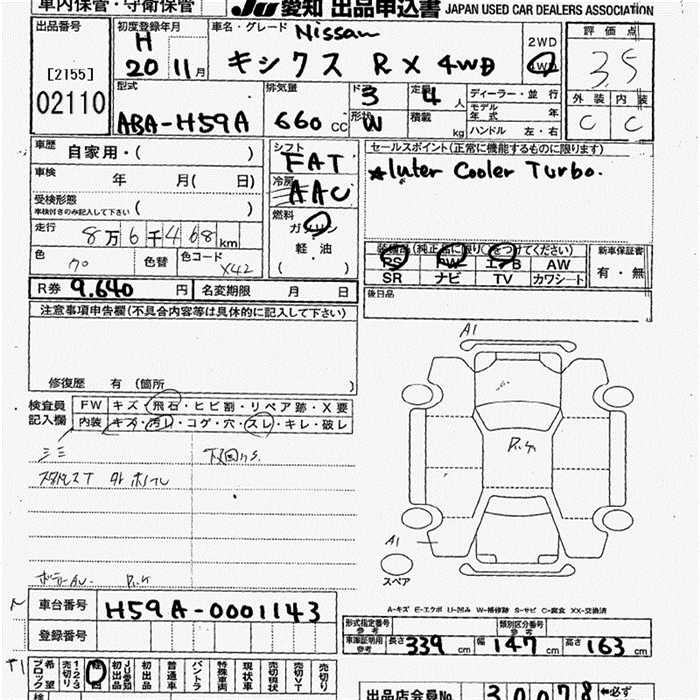 車内保管・守衛保管
JU 愛知 出品申込書 JAPAN USED CAR DEALERS ASSOCIATION
出品番号
[2155]
02110
初度登録年月
H
20 11月
車名・グレード Nissan
キシクス RX 4WD
2WD
4WD
評価点
3.5
外装 内装
C C
型式
ABA-H59A
排気量
660 CC
ドア 3
形状 W
定員 4 人
積載 kg
ディーラー・並行
モデル年式 年
ハンドル 左・右
車歴 自家用・( )
車検 年 月( 日)
受検形態
車検付きのみ記入して下さい ( )
走行 8万6千468km
色 色替 色コード X42
シフト
FAT
冷房
AAC
燃料
ガソリン
軽・油
( )
セールスポイント(正常に機能するものに限ります)
★Inter Cooler Turbo.
装備品(純正品に限り○をつけてください)
PS PW エアB AW
SR ナビ TV カワシート
新車保証書
有・無
後日品
R券 9.640 円 名変期限 月 日
注意事項申告欄(不具合内容等は具体的に記入して下さい)
修復歴 有(箇所 )
検査員記入欄
FW キズ・飛石・ヒビ割・リペア跡・X要
内装 キズ・汚レ・コゲ・穴・スレ・キレ・破レ
A1
A1
スペア
A-キズ E-エクボ U-凹み W-補修跡 S-サビ C-腐食 XX-交換済
車台番号 H59A-0001143
登録番号
形式指定番号 参考
類別区分番号 参考
車検証明用 参考 長さ 339 cm 幅 147 cm 高さ 163 cm
希望ブロック
1・2・3売切り
軽四
JU愛知初出品
初出品
普通車
バントラ
特殊車両
現状車
売切現状
売切VT
売切り
出品店会員No. 30078 ※必ず